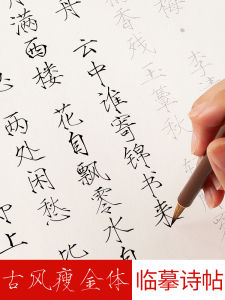 李清
香残玉簟秋
舟 云中谁寄锦书来
月满西楼 花自飘零水自
两处闲愁 此
上
古风瘦金体 临摹诗帖